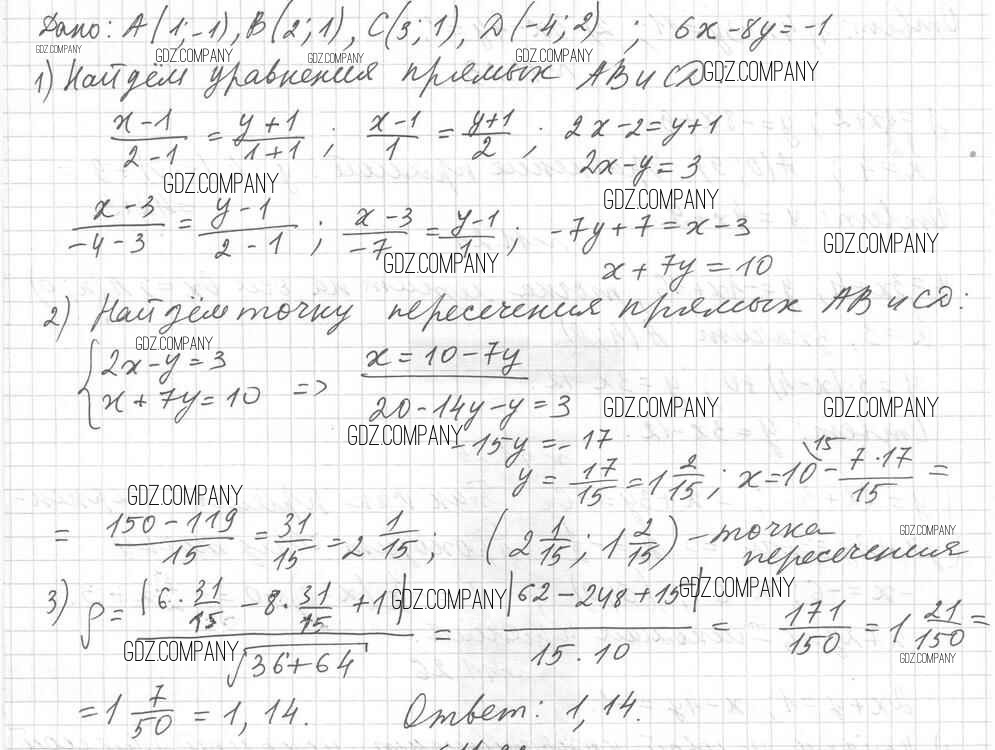 Дано: A(1;-1), B(2;1), C(3;1), D(-4;2) ; 6x-8y=-1
GDZ.COMPANY GDZ.COMPANY GDZ.COMPANY GDZ.COMPANY
1) Найдём уравнения прямых AB и CD GDZ.COMPANY
(x-1)/(2-1) = (y+1)/(1+1) ; (x-1)/1 = (y+1)/2 ; 2x-2=y+1
2x-y=3
GDZ.COMPANY GDZ.COMPANY
(x-3)/(-4-3) = (y-1)/(2-1) ; (x-3)/(-7) = (y-1)/1 ; -7y+7=x-3
GDZ.COMPANY GDZ.COMPANY
x+7y=10
2) Найдём точку пересечения прямых AB и CD:
GDZ.COMPANY
{2x-y=3 x=10-7y
x+7y=10 => 20-14y-y=3
GDZ.COMPANY GDZ.COMPANY
GDZ.COMPANY -15y=-17
y = 17/15 = 1 2/15 ; x=10\15 - 7·17/15 =
GDZ.COMPANY
= (150-119)/15 = 31/15 = 2 1/15 ; (2 1/15 ; 1 2/15) - точка
GDZ.COMPANY
пересечения
3) ρ = |6·31/15 - 8·31/15 + 1|/√(36+64) = |62-248+15|/(15·10) = 171/150 = 1 21/150 =
GDZ.COMPANY GDZ.COMPANY
GDZ.COMPANY GDZ.COMPANY
= 1 7/50 = 1,14. Ответ: 1,14.